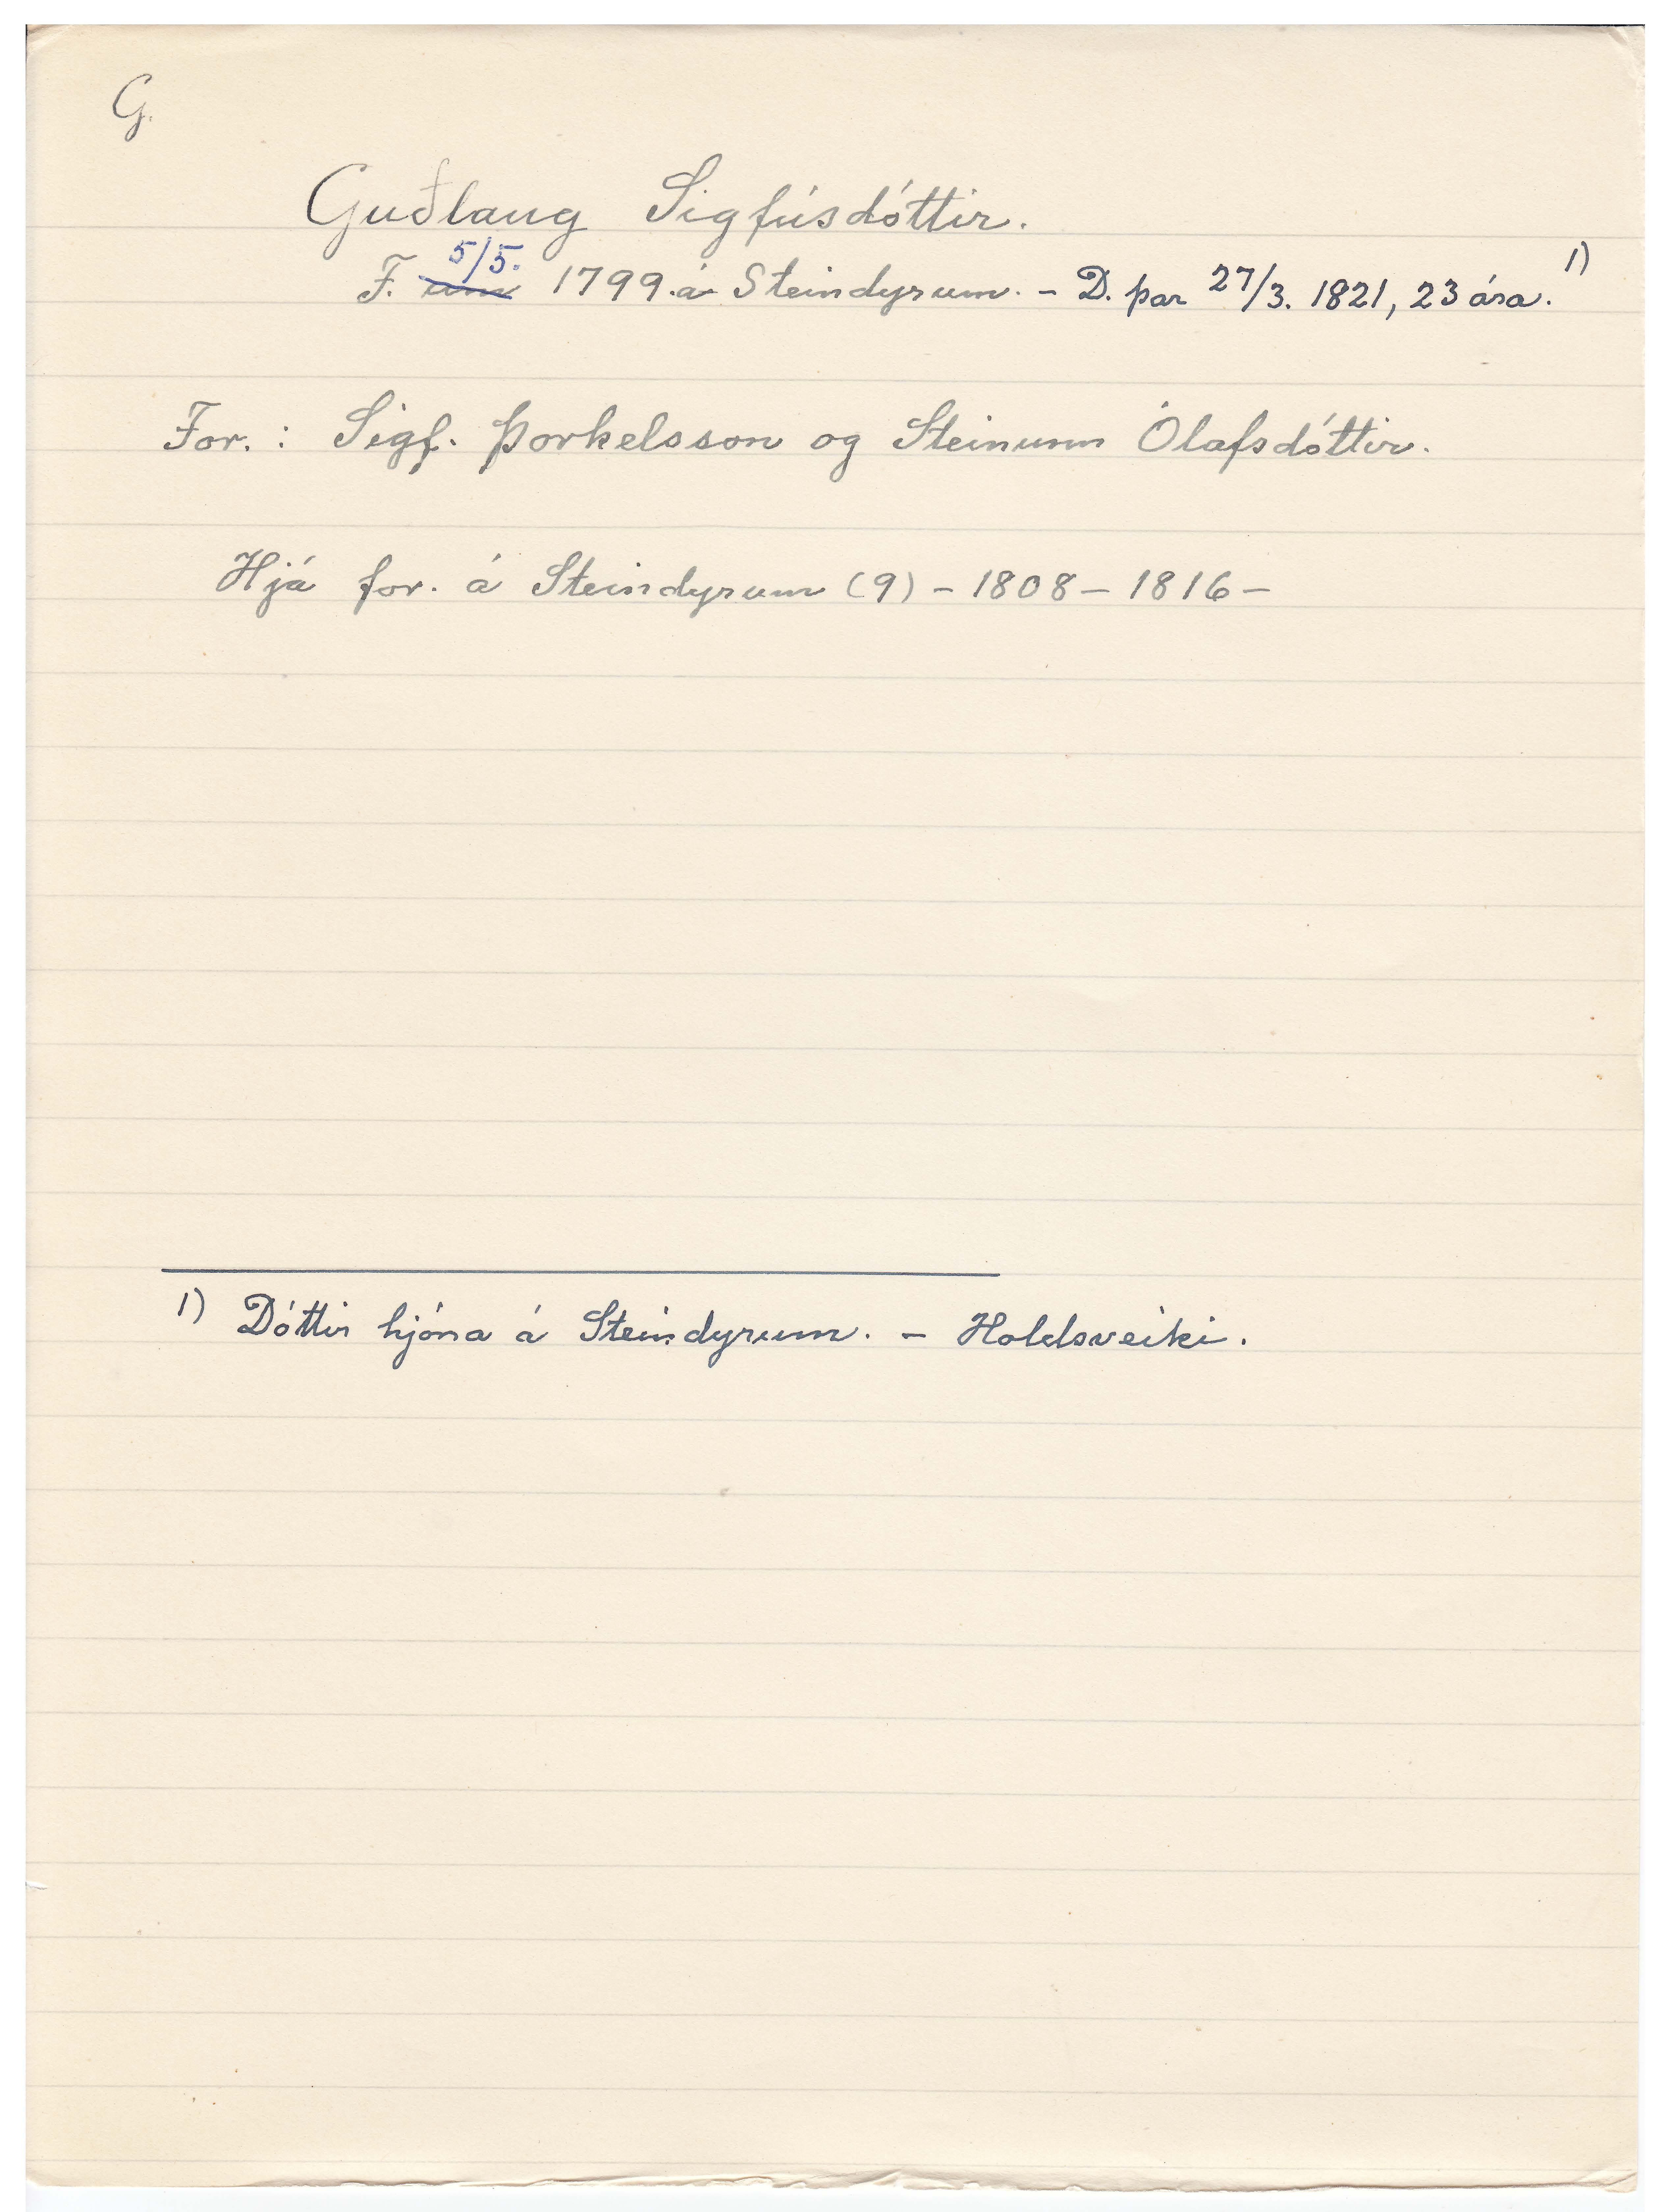 G.
Guðlaug Sigfúsdóttir.
F. um 5/5. 1799 á Steindyrum. - D. þar 27/3. 1821, 23 ára. 1)
For. : Sigf. Þorkelsson og Steinunn Ólafsdóttir.
Hjá for. á Steindyrum (9) - 1808 - 1816 -
1) Dóttir hjóna á Steindyrum. - Holdsveiki.